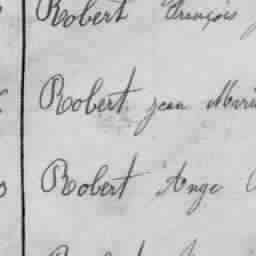 Robert François
Robert jean Marie
Robert Ange
Robert